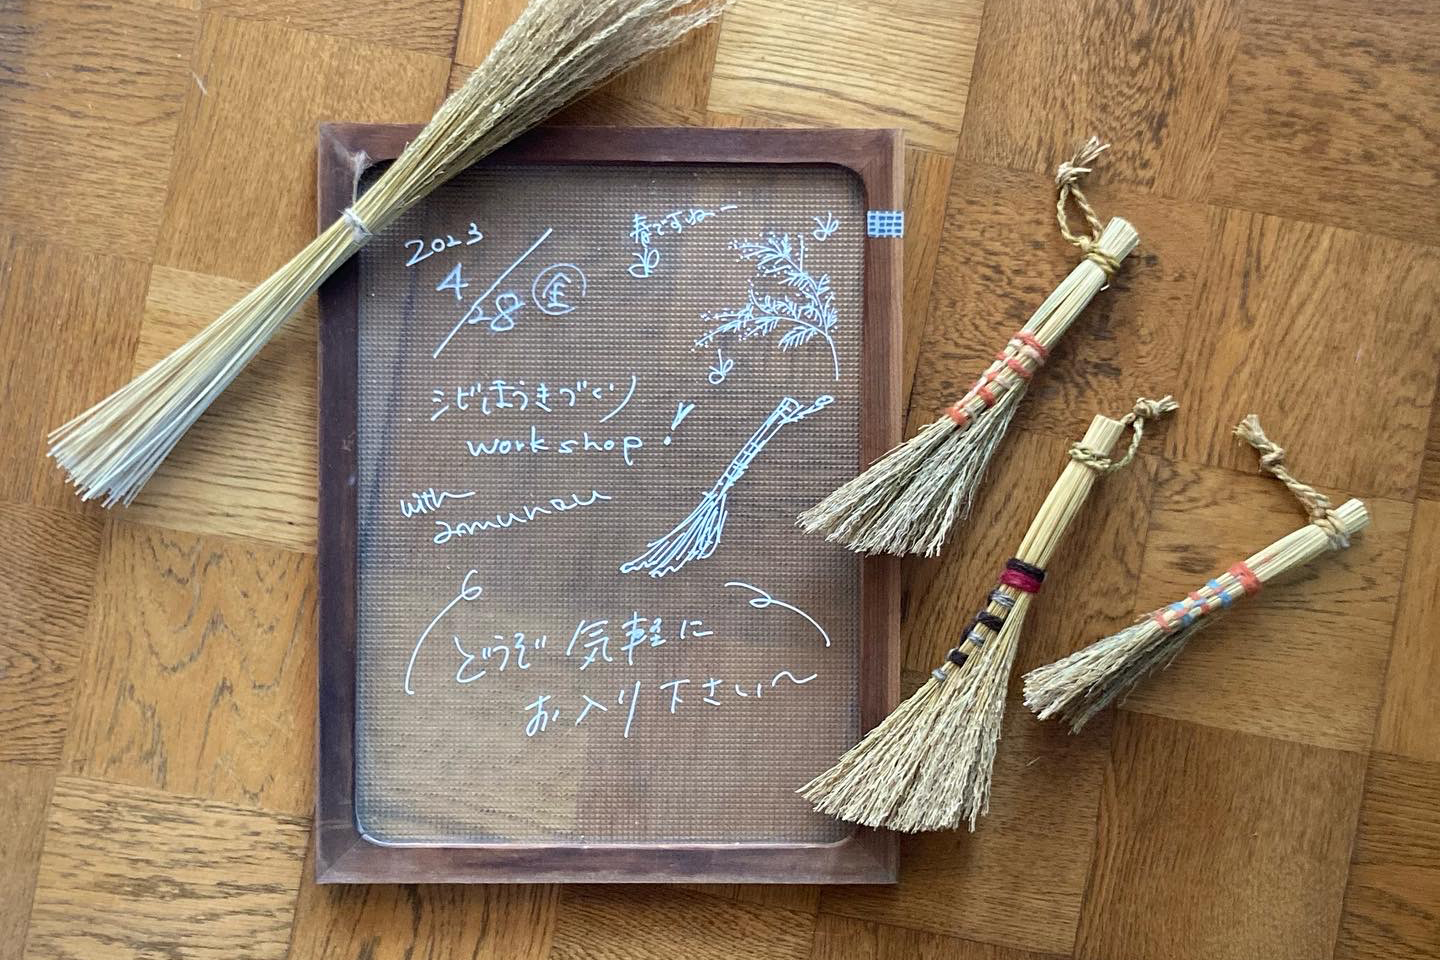 2023
4/28 金
春ですねー
シビほうきづくり
workshop!
with
amunau
どうぞ気軽に
お入り下さい〜